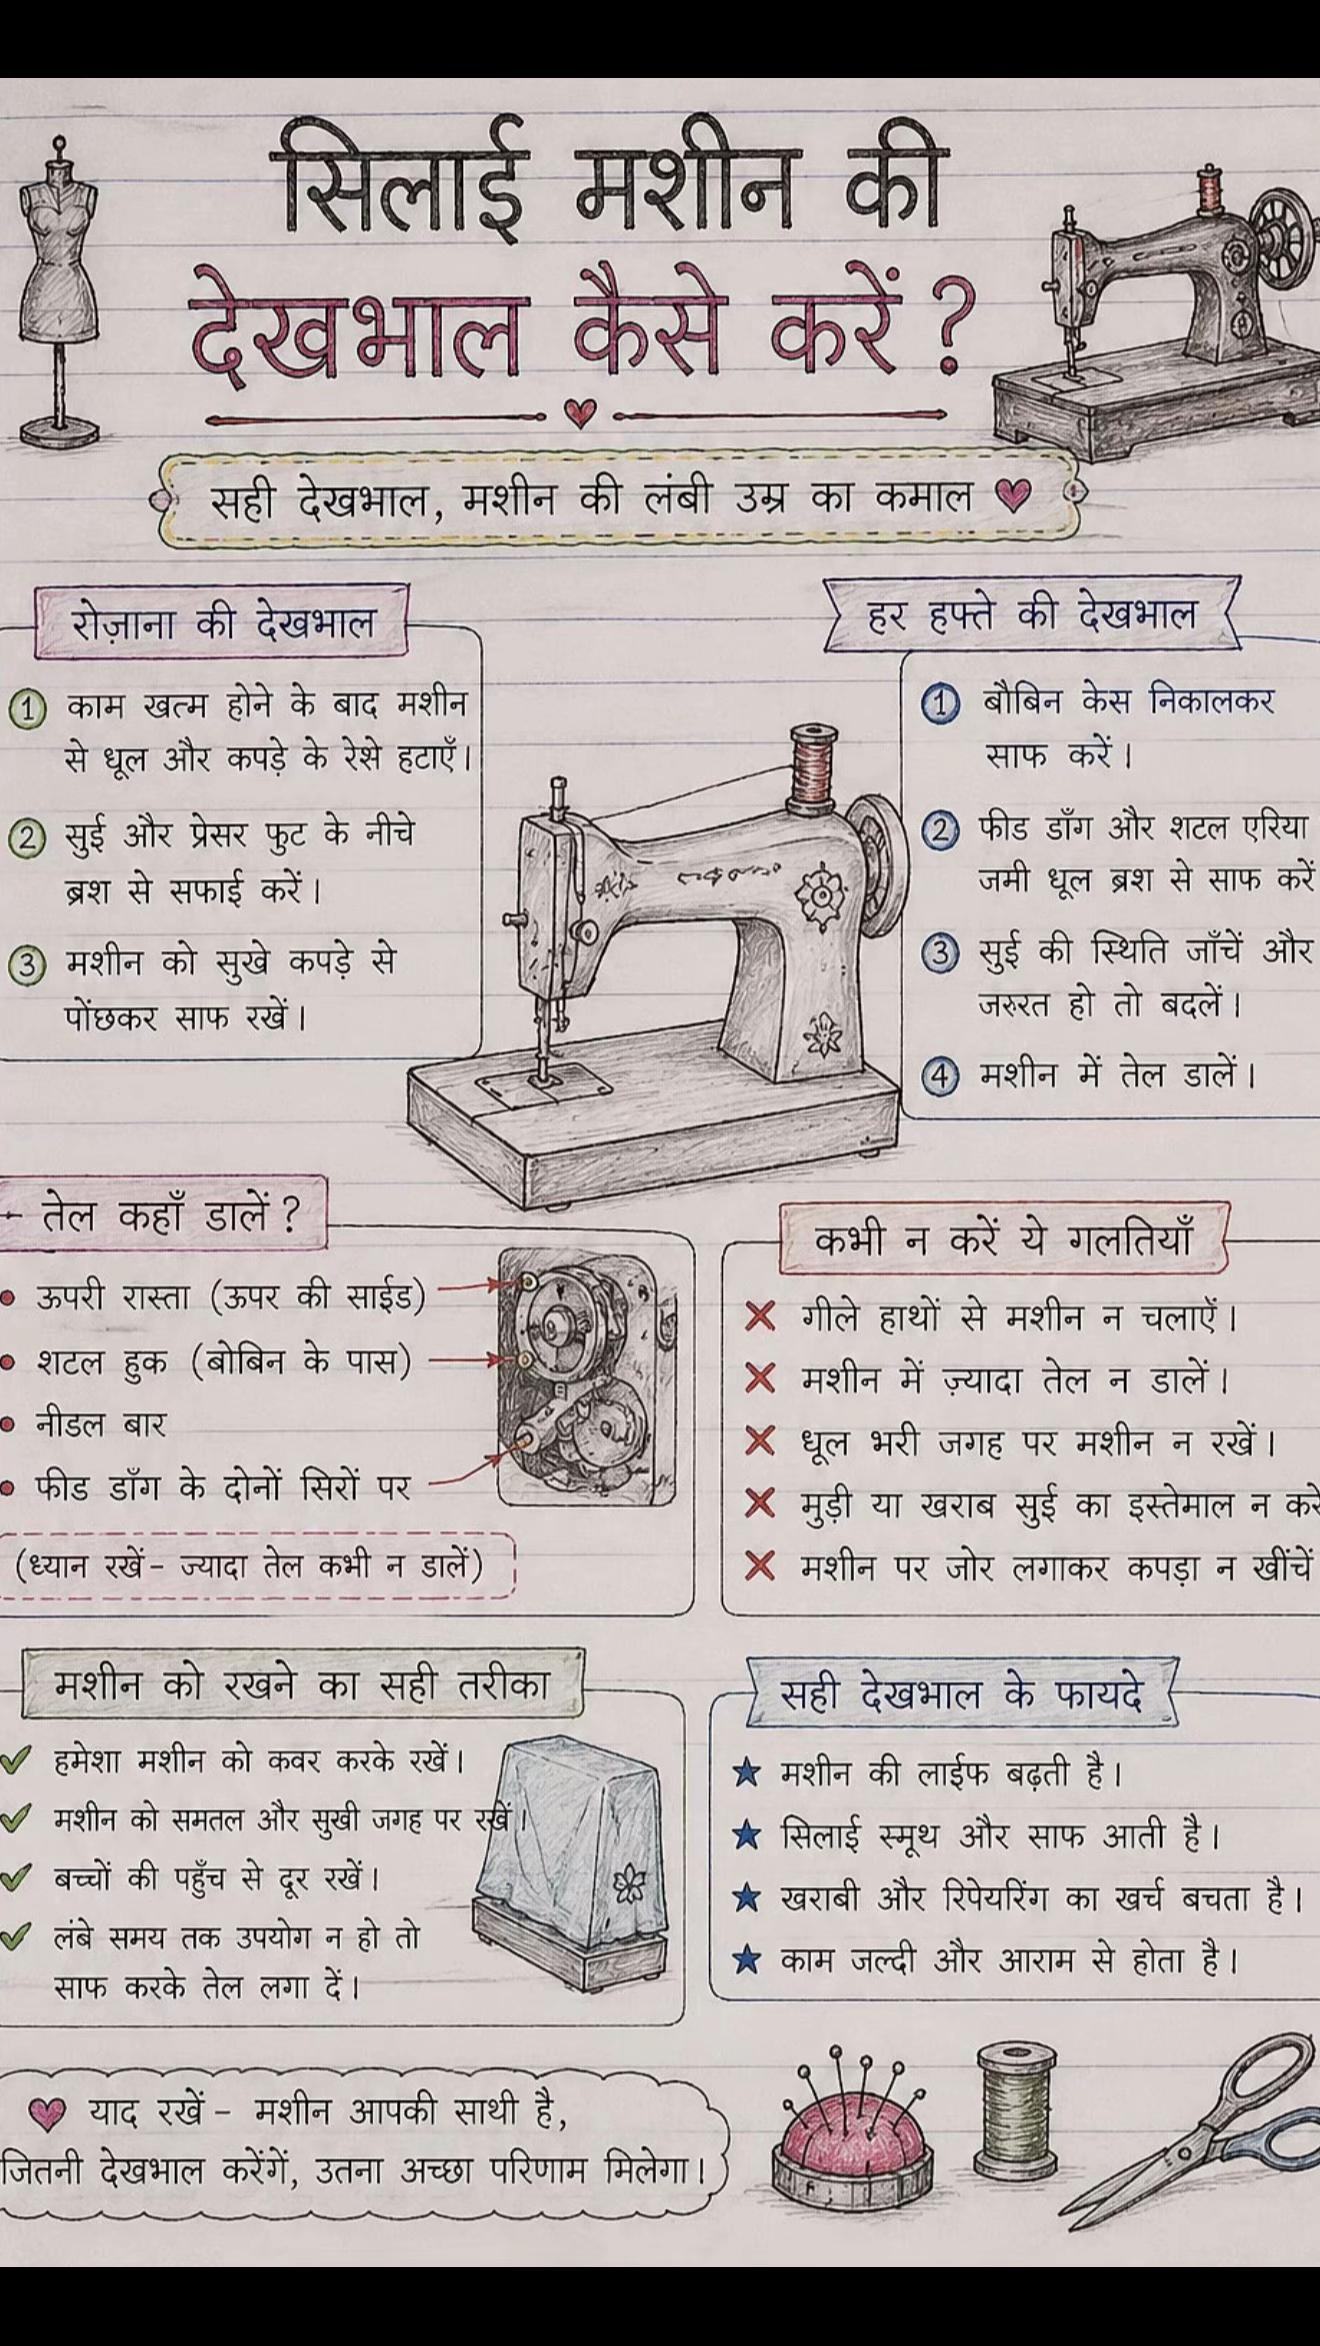 सिलाई मशीन की
देखभाल कैसे करें ?
सही देखभाल, मशीन की लंबी उम्र का कमाल
रोज़ाना की देखभाल
1 काम खत्म होने के बाद मशीन
से धूल और कपड़े के रेशे हटाएँ।
2 सुई और प्रेसर फुट के नीचे
ब्रश से सफाई करें।
3 मशीन को सुखे कपड़े से
पोंछकर साफ रखें।
हर हफ्ते की देखभाल
1 बौबिन केस निकालकर
साफ करें।
2 फीड डॉग और शटल एरिया
जमी धूल ब्रश से साफ करें
3 सुई की स्थिति जाँचें और
जरुरत हो तो बदलें।
4 मशीन में तेल डालें।
- तेल कहाँ डालें ?
• ऊपरी रास्ता (ऊपर की साईड)
• शटल हुक (बोबिन के पास)
• नीडल बार
• फीड डॉग के दोनों सिरों पर
(ध्यान रखें - ज्यादा तेल कभी न डालें)
कभी न करें ये गलतियाँ
गीले हाथों से मशीन न चलाऐं।
मशीन में ज़्यादा तेल न डालें।
धूल भरी जगह पर मशीन न रखें।
मुड़ी या खराब सुई का इस्तेमाल न करें
मशीन पर जोर लगाकर कपड़ा न खींचें
मशीन को रखने का सही तरीका
हमेशा मशीन को कवर करके रखें।
मशीन को समतल और सुखी जगह पर रखें।
बच्चों की पहुँच से दूर रखें।
लंबे समय तक उपयोग न हो तो
साफ करके तेल लगा दें।
सही देखभाल के फायदे
मशीन की लाईफ बढ़ती है।
सिलाई स्मूथ और साफ आती है।
खराबी और रिपेयरिंग का खर्च बचता है।
काम जल्दी और आराम से होता है।
याद रखें - मशीन आपकी साथी है,
जितनी देखभाल करेंगें, उतना अच्छा परिणाम मिलेगा।